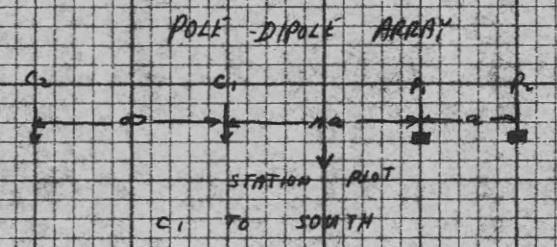 POLE-DIPOLE ARRAY
C2 C1 P1 P2
∞ na a
STATION PLOT
C1 TO SOUTH